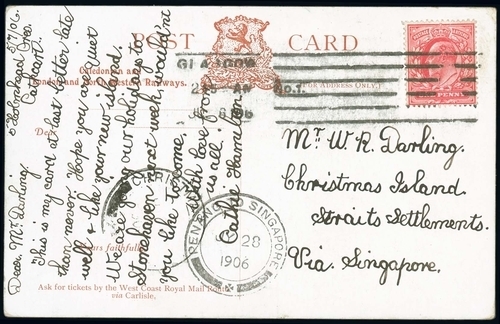 POST CARD
Caledonian
London and North Western Railways.
(FOR ADDRESS ONLY.)
GLASGOW
2 15 AM
No. 1.
PENNY
Mr. W. R. Darling.
Christmas Island.
Straits Settlements.
Via. Singapore.
5/7/06.
Cathcart.
Dear Mr. Darling
This is my card at last better late
than never. Hope you are quiet
well & like your new island.
We are going our holidays to
Stonehaven next week, wouldn't
you like to come.
With love from
us all.
Cathie Hamilton
Dear
Yours faithfully
PENANG TO SINGAPORE
28
1906
Ask for tickets by the West Coast Royal Mail Route
via Carlisle.